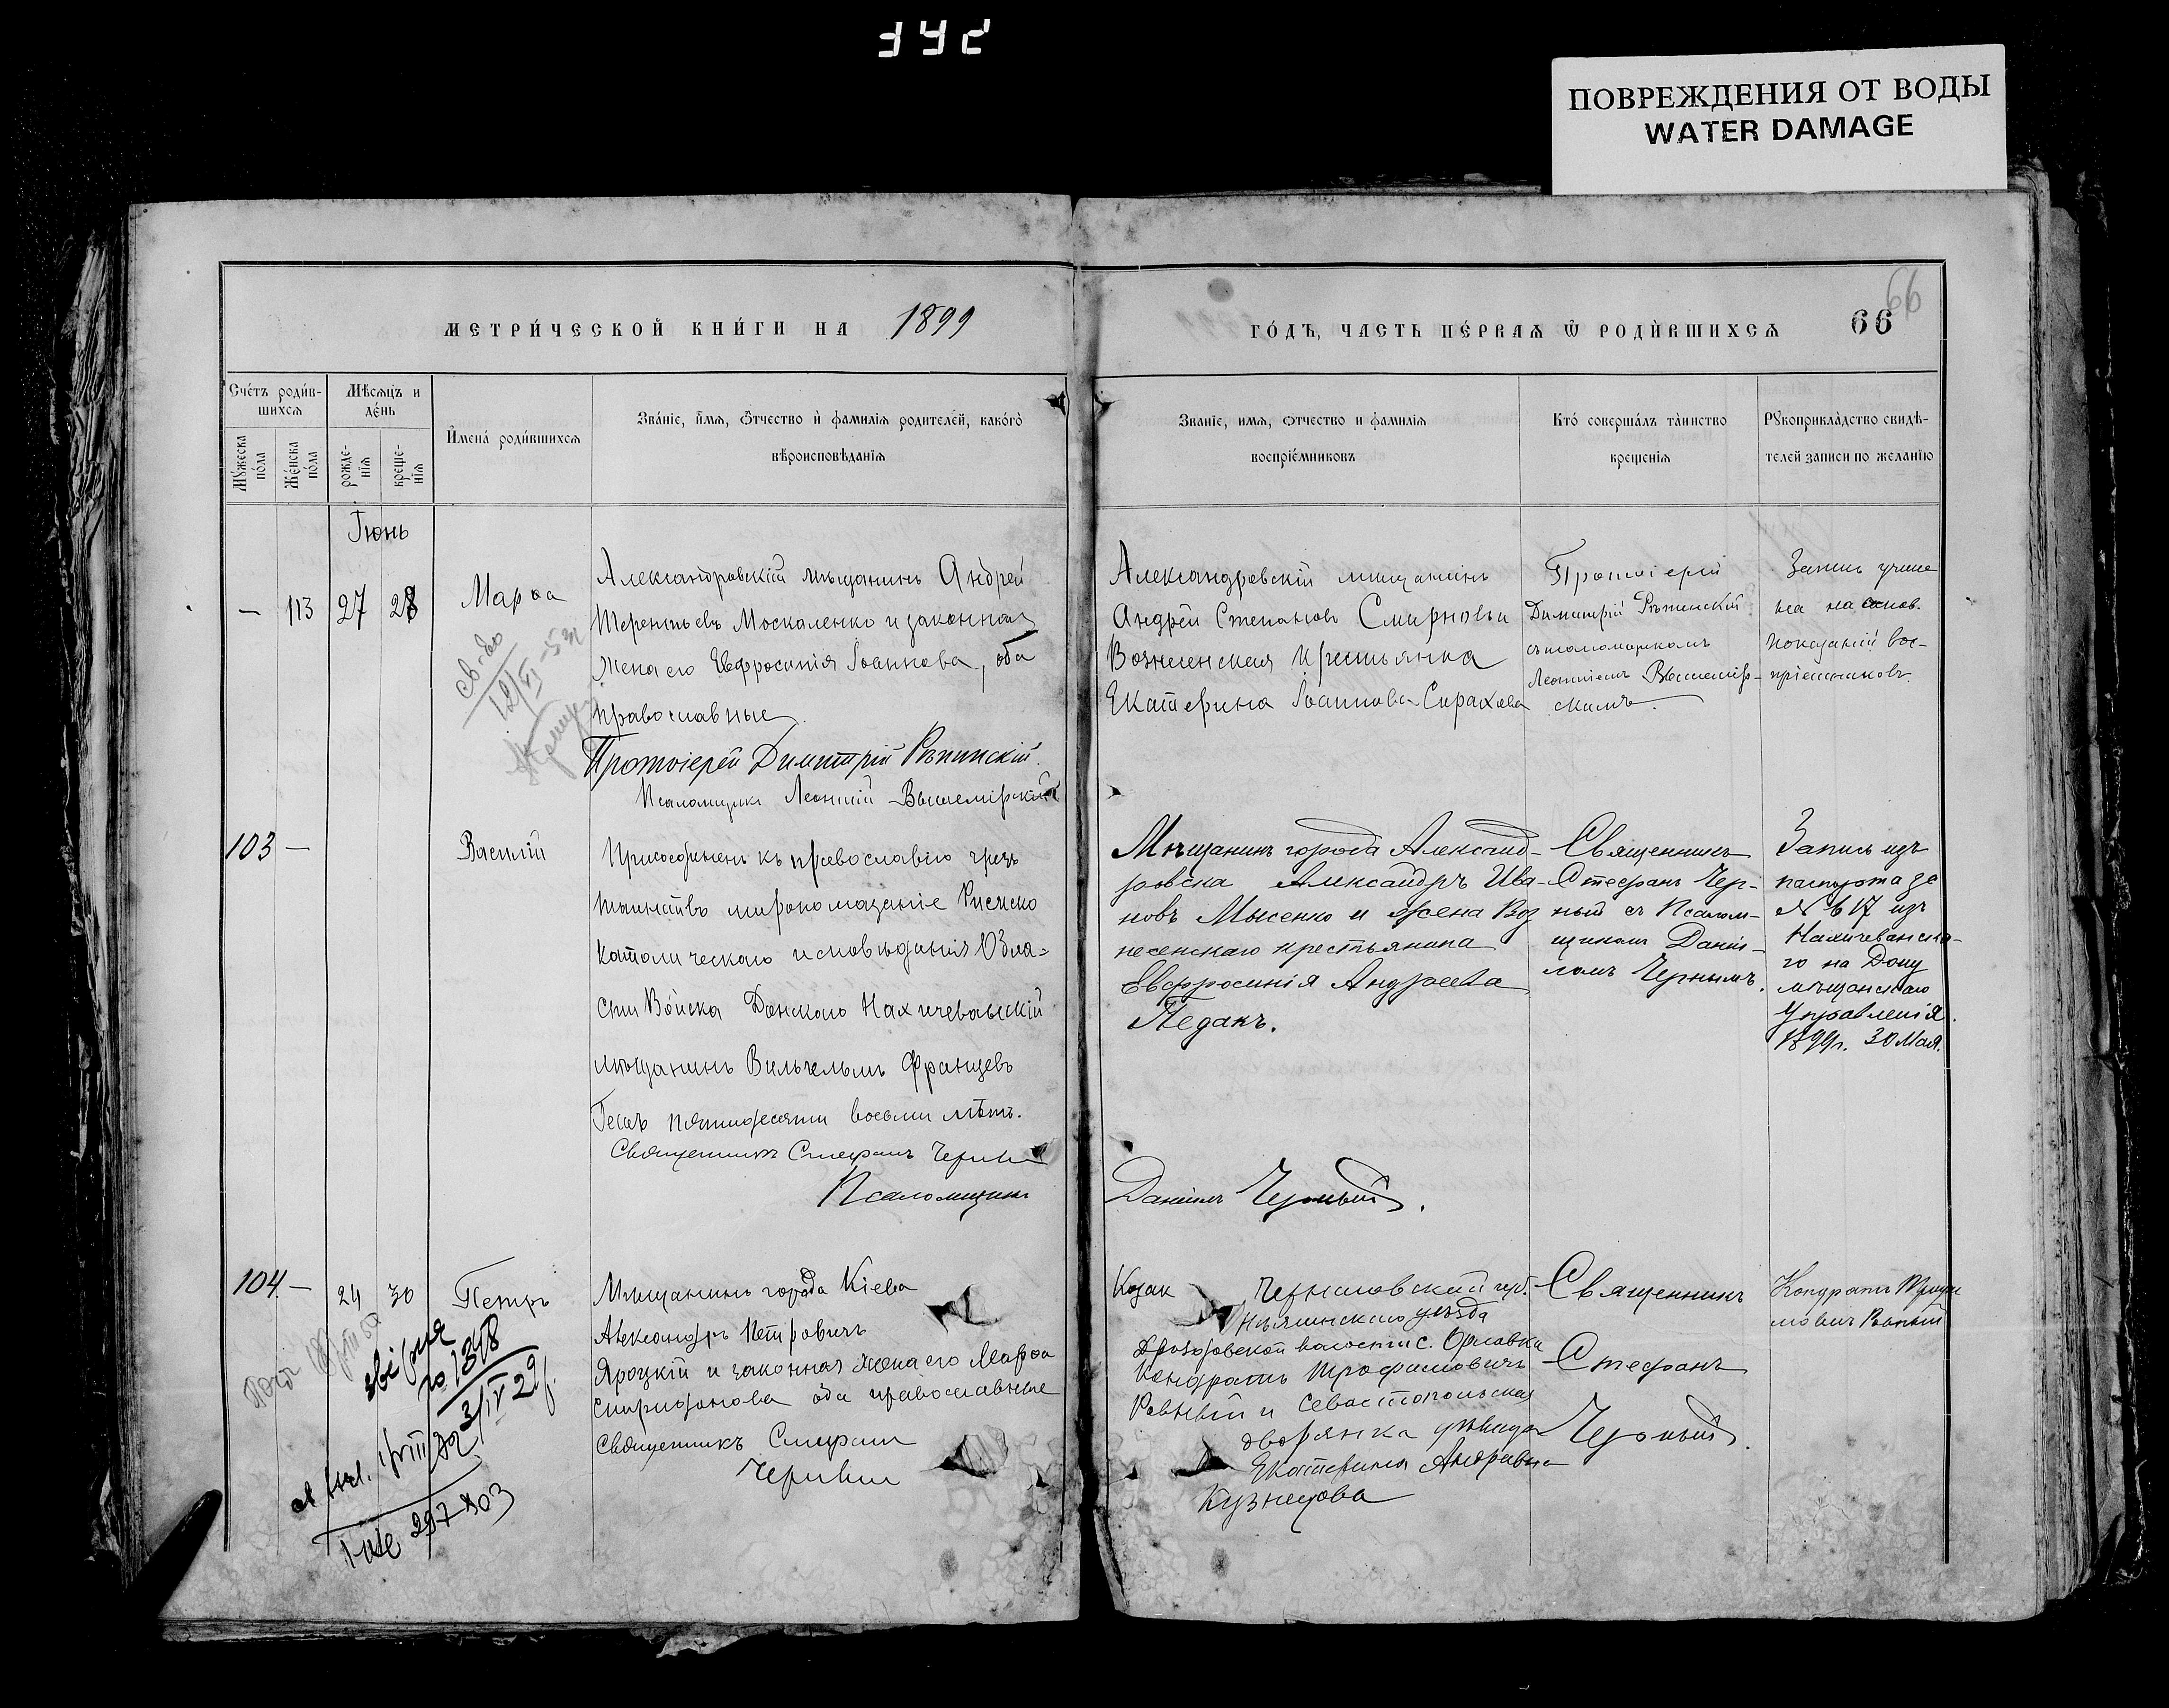 342
ПОВРЕЖДЕНИЯ ОТ ВОДЫ
WATER DAMAGE
МЕТРИ́ЧЕСКОЙ КНИ́ГИ НА 1899
ГО́ДЪ, ЧАСТЬ ПЕ́РВАѦ Ѿ РОДИ́ВШИХСѦ 66
66
Сче́тъ роди́в-
шихсѧ
Мѣ́сѧцъ и
де́нь
Мꙋ́жеска
по́ла
Же́нска
по́ла
рожде-
нїѧ
креще-
нїѧ
И́мена́ роди́вшихсѧ
Зва́нїе, и́мѧ, ѻ́тчество и́ фамилїѧ родителей, како́го
вѣроисповѣ́данїѧ
Званїе, имѧ, ѻтчество и фамилїѧ
воспрїе́мниковъ
Кто́ соверша́лъ та́инство
крещенїѧ
Рꙋкоприкла́дство свидѣ́-
телей записи по желанїю
Іюнь
— 113 27 28
Марѳа
Александровскій мѣщанинъ Андрей
Терентьевъ Москаленко и законная
жена его Евфросинія Іоаннова, оба
православные.
Протоіерей Димитрій Рѣпинскій.
Псаломщикъ Леонтій Вышемірскій
Александровскій мѣщанинъ
Андрей Степановъ Смирновъ и
Вознесенская крестьянка
Екатерина Іоаннова Сирахова
Протоіерей
Димитрій Рѣпинскій
съ псаломщикомъ
Леонтіемъ Вышемір-
скимъ.
Запись учине
на на основ.
показаній вос-
пріемниковъ.
103 —
Василій
Присоединенъ къ православію чрезъ
таинство мѵропомазаніе Римско
католическаго исповѣданія Обла=
сти Войска Донскаго Нахичеваньскій
мѣщанинъ Вильгельмъ Францевъ
Гессъ пятидесяти восьми лѣтъ.
Священникъ Стефанъ Черный
Псаломщикъ
Даніилъ Черный.
Мѣщанинъ города Александ-
ровска Александръ Ива-
новъ Мысенко и жена Воз
несенскаго крестьянина
Евфросинія Андреева
Педакъ.
Священникъ
Стефанъ Чер-
ный съ Псалом-
щикомъ Даніи-
ломъ Чернымъ.
Запись изъ
паспорта за
№ 617 изъ
Нахичеванска-
го на Дону
мѣщанскаго
Управленія.
1899 г. 30 Мая.
104 — 24 30
Петръ
Мѣщанинъ города Кіева
Александръ Петровичъ
Яроцкій и законная жена его Марѳа
Спиридонова оба православные
Священникъ Стефанъ
Черный
Козак Черниговской губ.
Нѣжинскаго уѣзда
Дроздовской волости с. Орловка
Кондратъ Трофимовичъ
и Севастопольская
дворянка дѣвица
Екатерина Андреевна
Кузнецова
Священникъ
Стефанъ
Черный.
Кондратъ Трофи
мовичъ